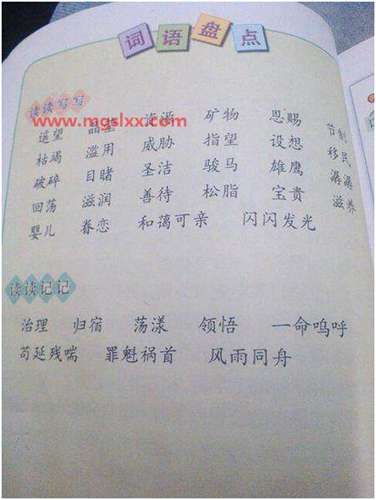 词语盘点
读读写写
www.mgslxx.com
遥望 晶莹 资源 矿物 恩赐 节制
枯竭 滥用 威胁 指望 设想 移民
破碎 目睹 圣洁 骏马 雄鹰 潺潺
回荡 滋润 善待 松脂 宝贵 滋养
婴儿 眷恋 和蔼可亲 闪闪发光
读读记记
治理 归宿 荡漾 领悟 一命呜呼
苟延残喘 罪魁祸首 风雨同舟